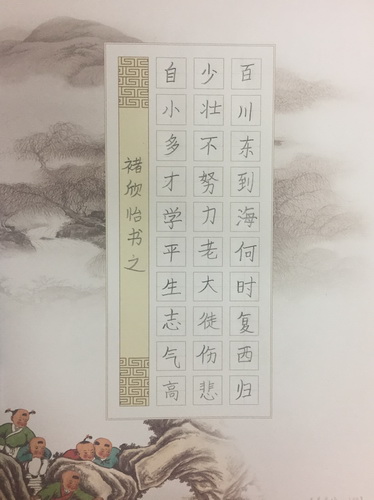 百川东到海何时复西归
少壮不努力老大徒伤悲
自小多才学平生志气高
褚欣怡书之